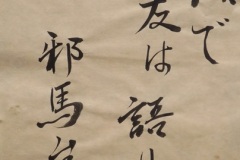 で
友は語
邪馬